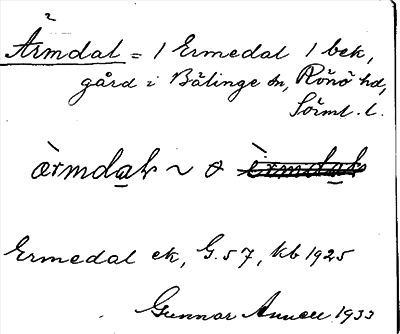 Ärmdal = 1 Ermedal 1 bek,
gård i Bälinge sn, Rönö hd,
Sörml. l.
ærmdal ~ &
Ermedal ek, G. 57, kb 1925
Gunnar 1933